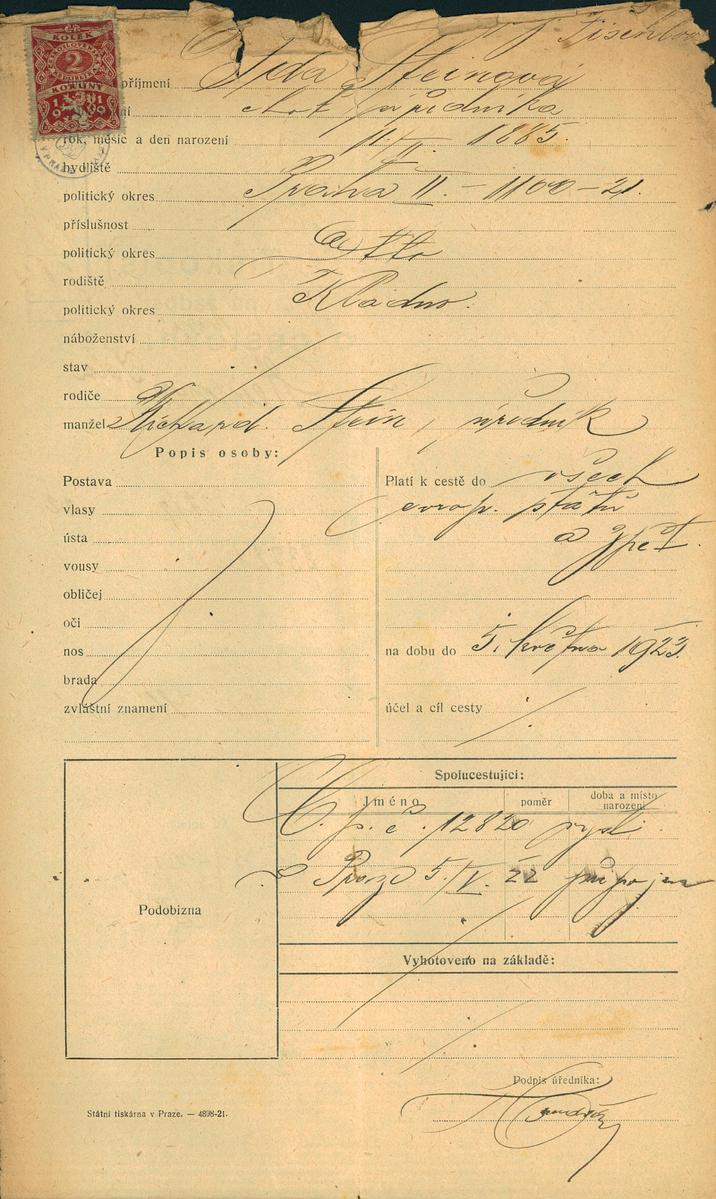 KOLEK
2
KORUNY
příjmení Steinová
choť úředníka
rok, měsíc a den narození 11/II. 1885.
bydliště
politický okres Praha II. – 1100 – 21.
příslušnost
politický okres
rodiště
politický okres Kladno.
náboženství
stav
rodiče
manžel Richard Stein, úředník
Popis osoby:
Postava
vlasy
ústa
vousy
obličej
oči
nos
brada
zvláštní znamení
Platí k cestě do všech
evrop. států
a zpět.
na dobu do 5. května 1923.
účel a cíl cesty
Podobizna
Spolucestující:
Jméno poměr doba a místo narození
č. p. č. 12820
Praze 5/V. 22
Vyhotoveno na základě:
Podpis úředníka:
Státní tiskárna v Praze. — 4898-21.